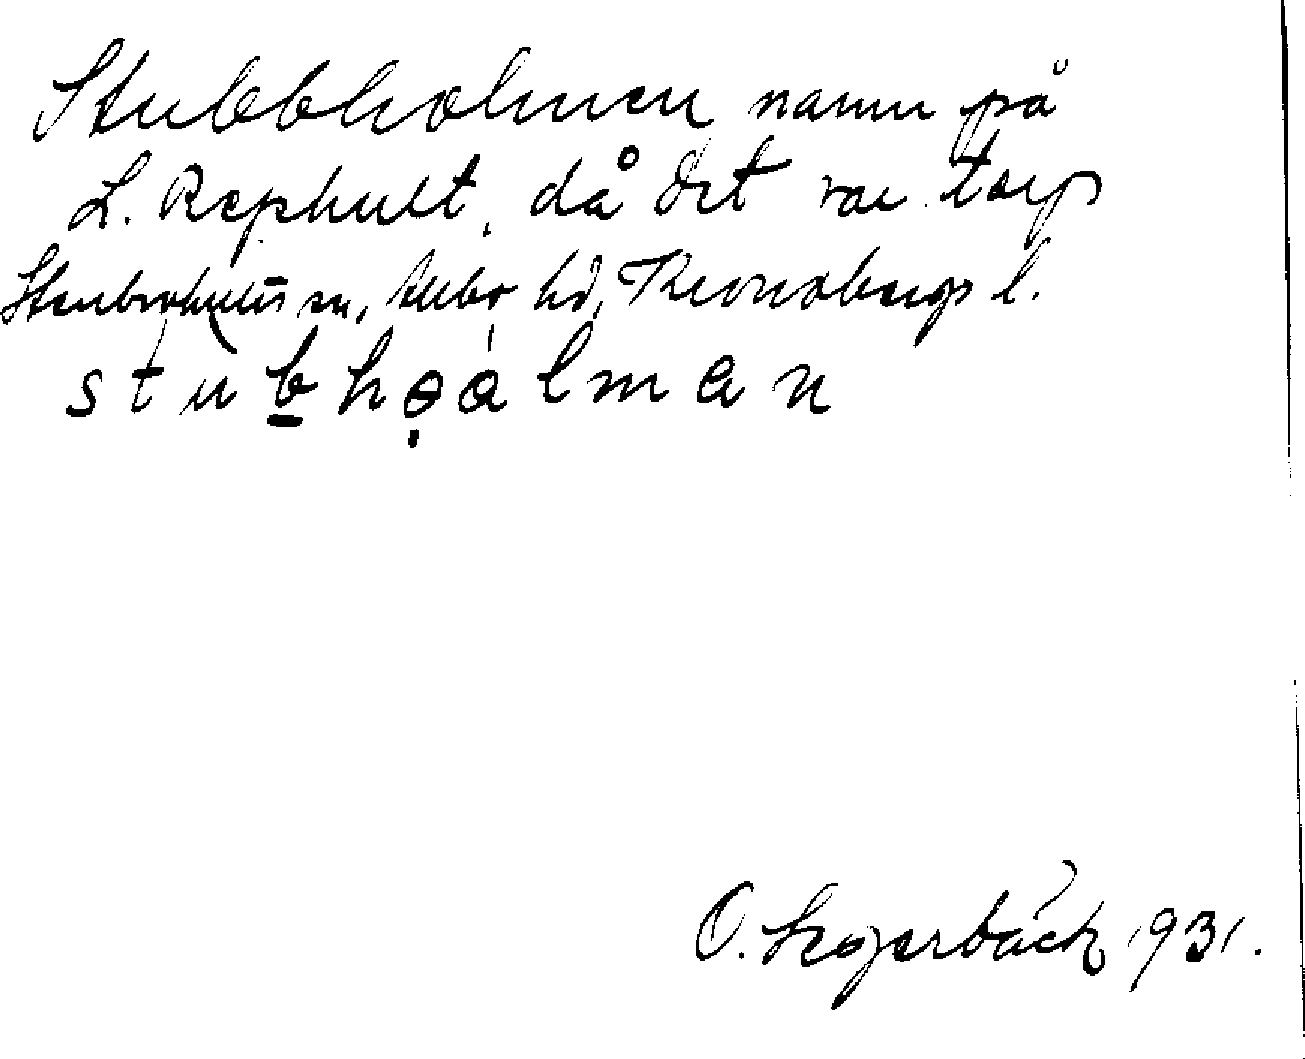 Stubbholmen namn på
L. Rephult, då det var torp
Stenbrohults sn, Allbo hd, Kronobergs l.
stubhoalman
O. Segerbäck 1931.